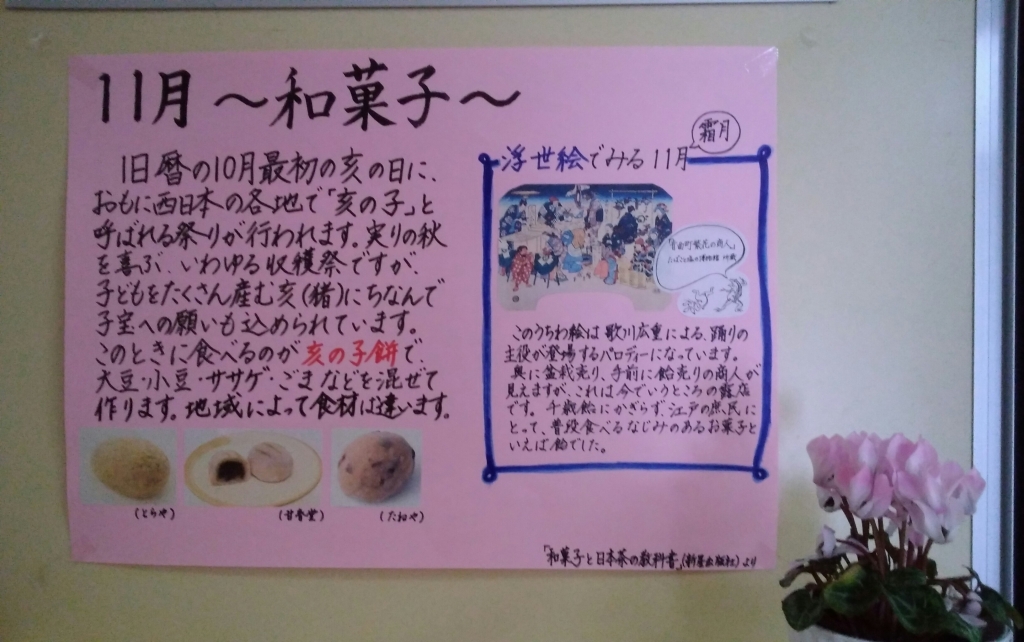 11月 ～和菓子～
旧暦の10月最初の亥の日に、
おもに西日本の各地で「亥の子」と
呼ばれる祭りが行われます。実りの秋
を喜ぶ、いわゆる収穫祭ですが、
子どもをたくさん産む亥(猪)にちなんで
子宝への願いも込められています。
このときに食べるのが亥の子餅で、
大豆・小豆・ササゲ・ごまなどを混ぜて
作ります。地域によって食材は違います。
(とらや)
(甘春堂)
(たねや)
霜月
浮世絵でみる11月
繁花の商人」
このうちわ絵は歌川広重による、踊りの
主役が登場するパロディーになっています。
奥に盆栽売り、手前に飴売りの商人が
見えますが、これは今でいうところの露店
です。千歳飴にかぎらず、江戸の庶民に
とって、普段食べるなじみのあるお菓子と
いえば飴でした。
「和菓子と日本茶の教科書」(新星出版社)より